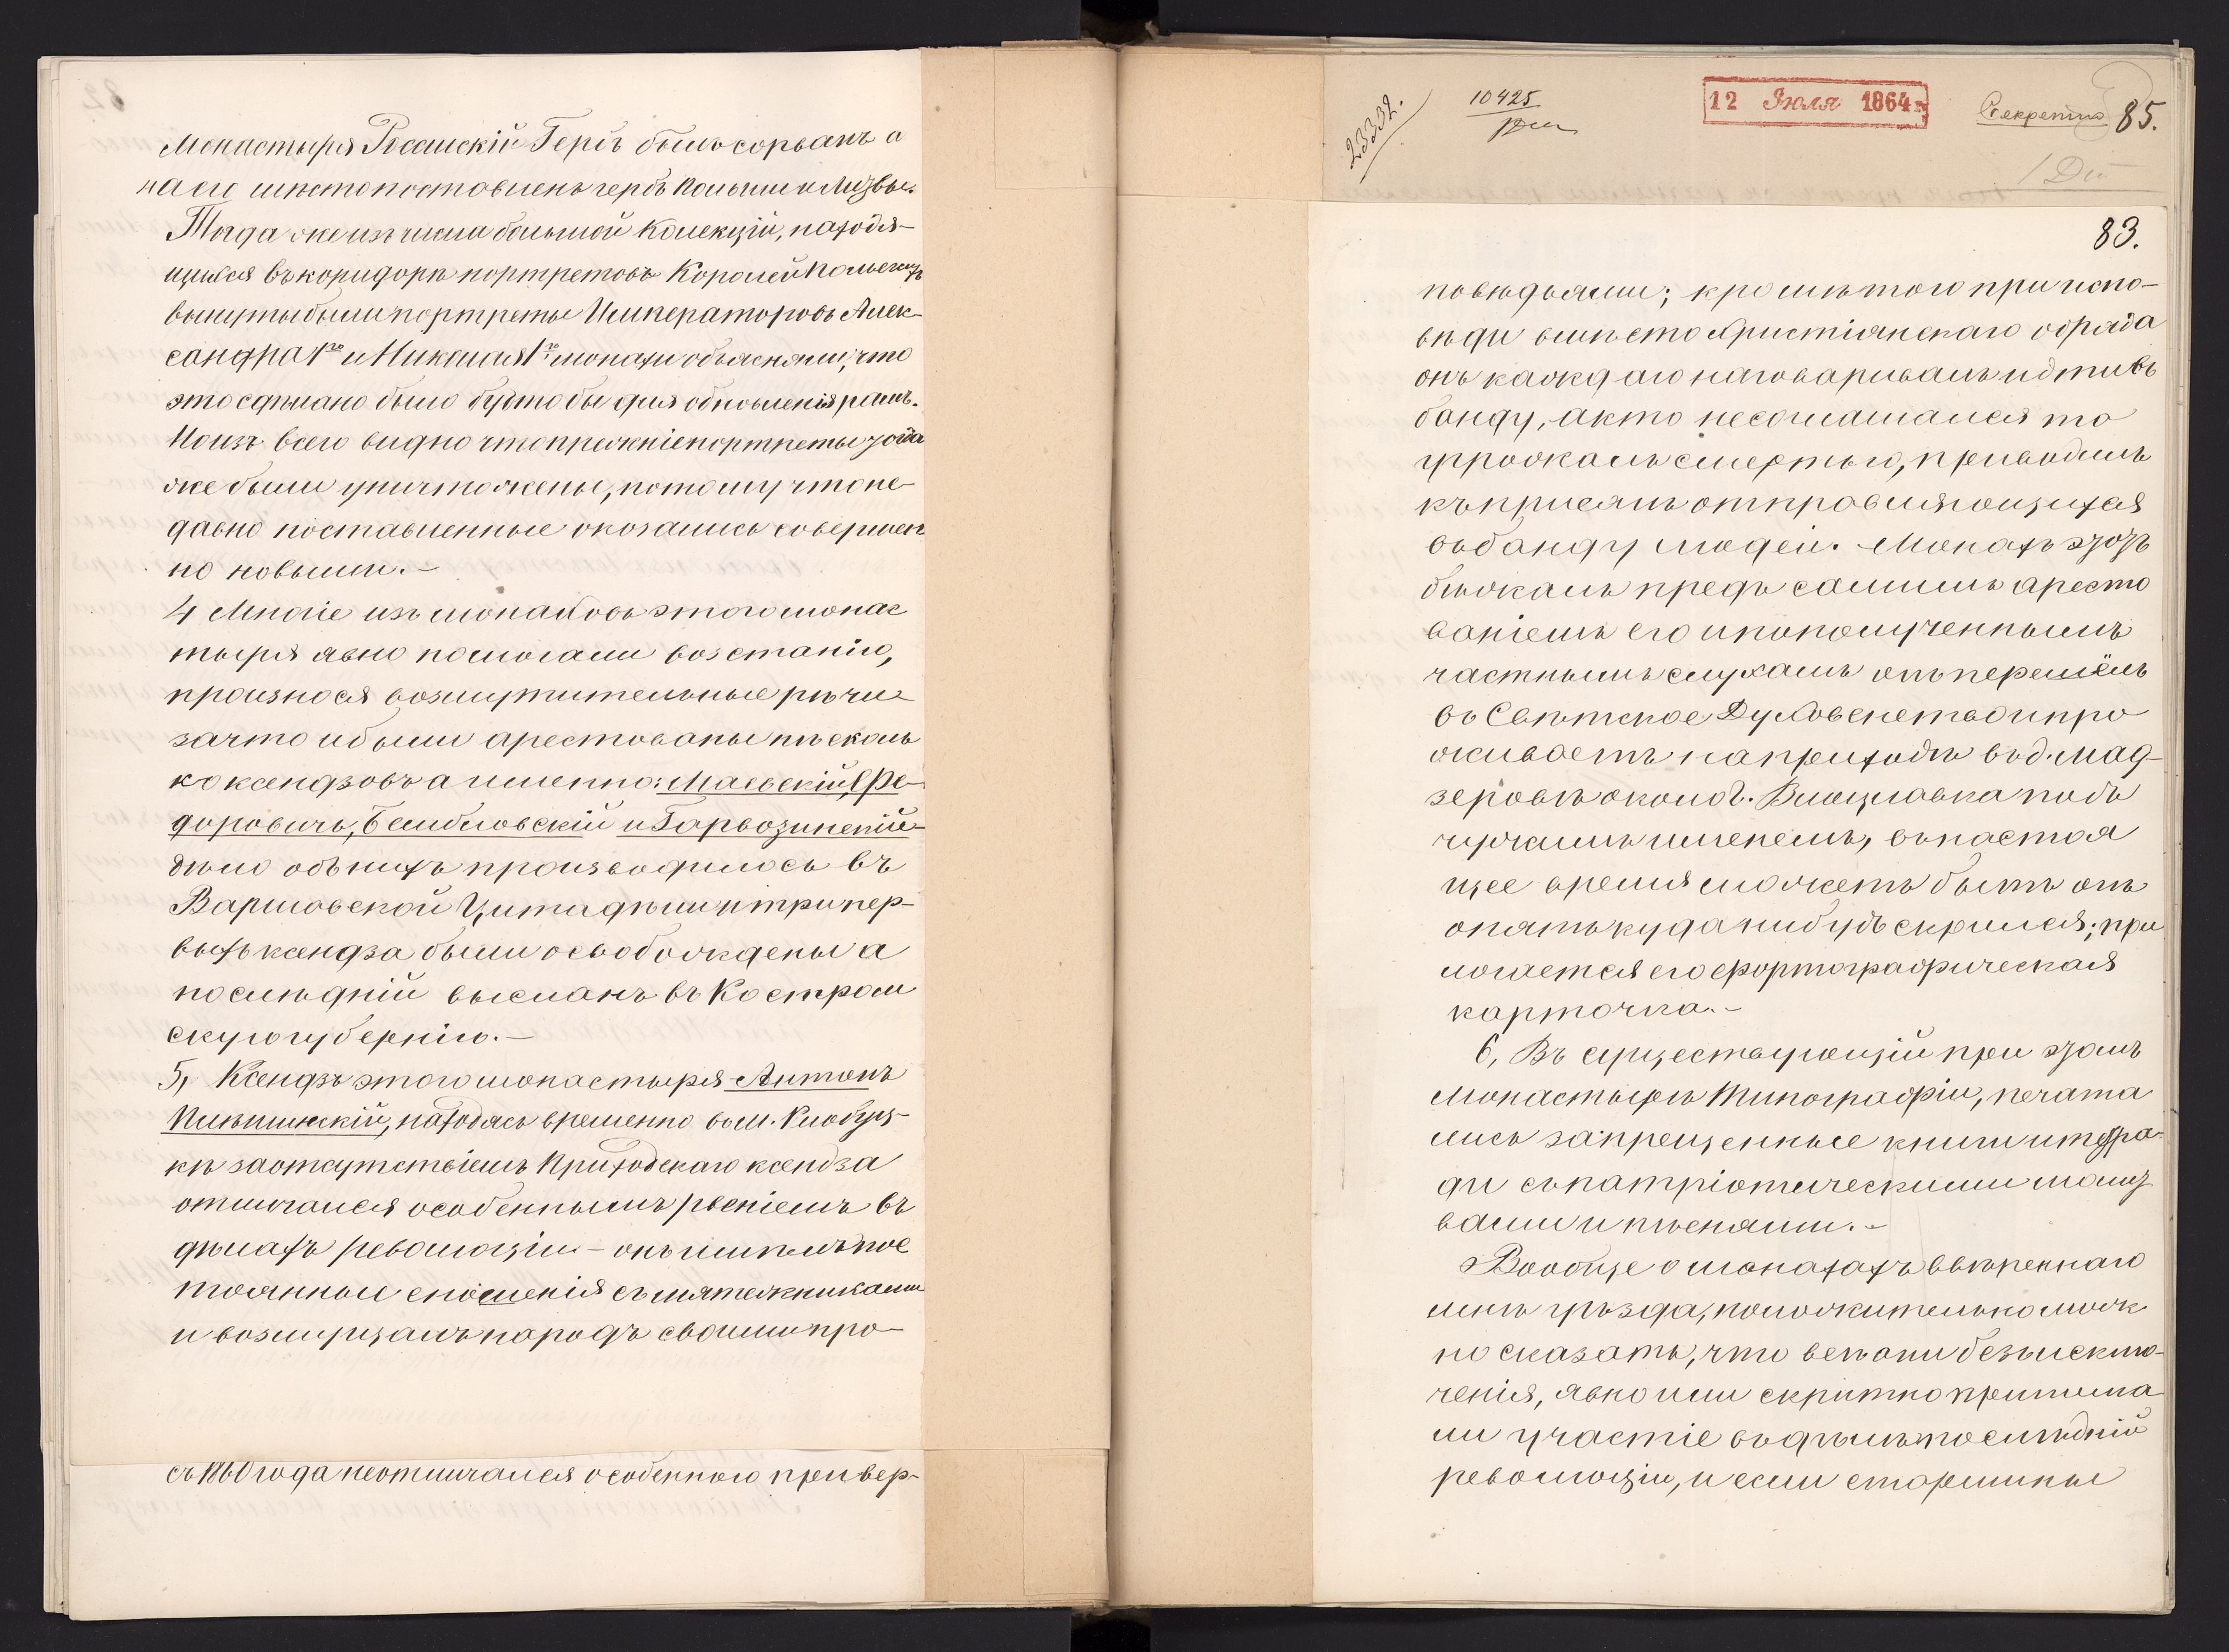 Монастыря Россiйскiй Гербъ былъ сорванъ а
на его мѣсто поставленъ гербъ Польши и Литвы.
Тогда же изъ числа большой Колекцiи, находя-
щихся въ коридорѣ портретовъ Королей Польскихъ
вынуты были портреты Императоровъ Алек-
сандра 1го и Николая 1го монахи объясняли, что
это сдѣлано было будто бы для обновленiя рамъ.
Но изъ всего видно что прежнiе портреты тогда
же были уничтожены, потому что не-
давно поставленные оказались совершен
но новыми.-
4 Многiе изъ монаховъ этого монас
тыря явно помогали возстанiю,
произнося возмутительные рѣчи
за что и были арестованы нѣсколь
ко ксендзовъ а именно: Маевскiй, Фе-
доровичъ, Бембловскiй и
дѣло объ нихъ производилось въ
Варшавской Цитадѣли и три пер-
выхъ ксендза были освобождены а
послѣднiй высланъ въ Костром
скую губернiю.-
5, Ксендзъ этого монастыря Антонъ
находясь временно въ м. Клобуц-
кѣ за отсутствiемъ Приходскаго ксендза
отличался особеннымъ рвенiемъ въ
дѣлахъ революцiи - онъ имѣлъ пос
тоянные сношенiя съ мятежниками
и возмущалъ народъ своими про-
съ 1860 года неотличался особенною привер-
23332.
10425
12 Июля 1864 г.
Секретно 85.
83.
повѣдьями; кромѣ того при испо-
вѣди вмѣсто Христiянскаго обряда
онъ каждаго наговаривалъ идти въ
банду, а кто несоглашался то
угрожалъ смертью, приводилъ
къ присягѣ отправляющихся
въ банду людей. Монахъ этотъ
бѣжалъ предъ самымъ аресто
ванiемъ его и по полученнымъ
частнымъ слухамъ онъ перешёлъ
въ Свѣтское Духовенство и про
живаетъ на приходѣ въ д. Мад-
зеровѣ около г. Влощлавка подъ
чужимъ именемъ, въ настоя
щее время можетъ быть онъ
опять куда нибудь скрылся; при
логается его фортографическая
карточка.-
6, Въ существующiй при этомъ
Монастырѣ Типографiи, печата
лись запрещенные книги и тетра-
ди съ патрiотическими молит
вами и пѣснями.-
Вообще о монахахъ ввѣреннаго
мнѣ уѣзда, положительно мож
но сказать, что всѣ они безъ исклю-
ченiя, явно или скрытно принима
ли участiе въ дѣлѣ послѣднiй
революцiи, и если старшины